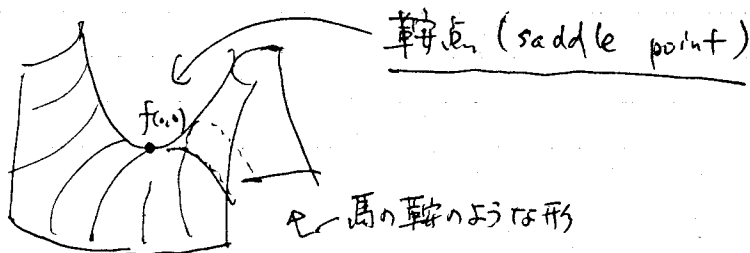 鞍点 (saddle point)
f(0,0)
馬の鞍のような形